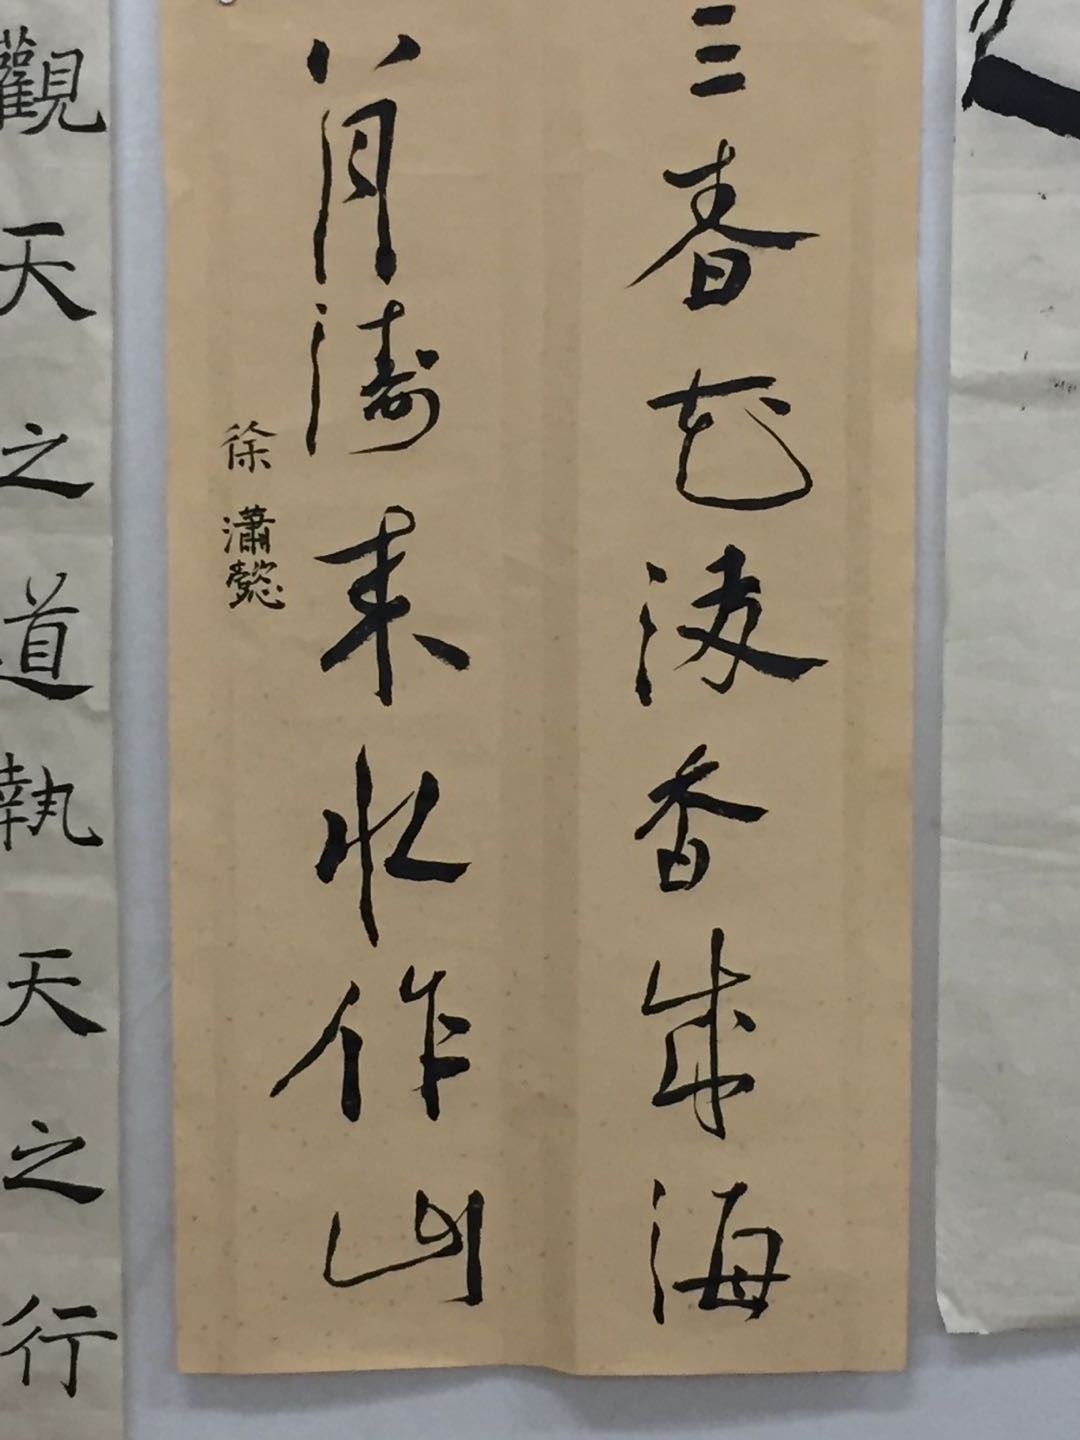 三春花發香成海
八月濤来水作山
徐瀟懿
觀天之道執天之行